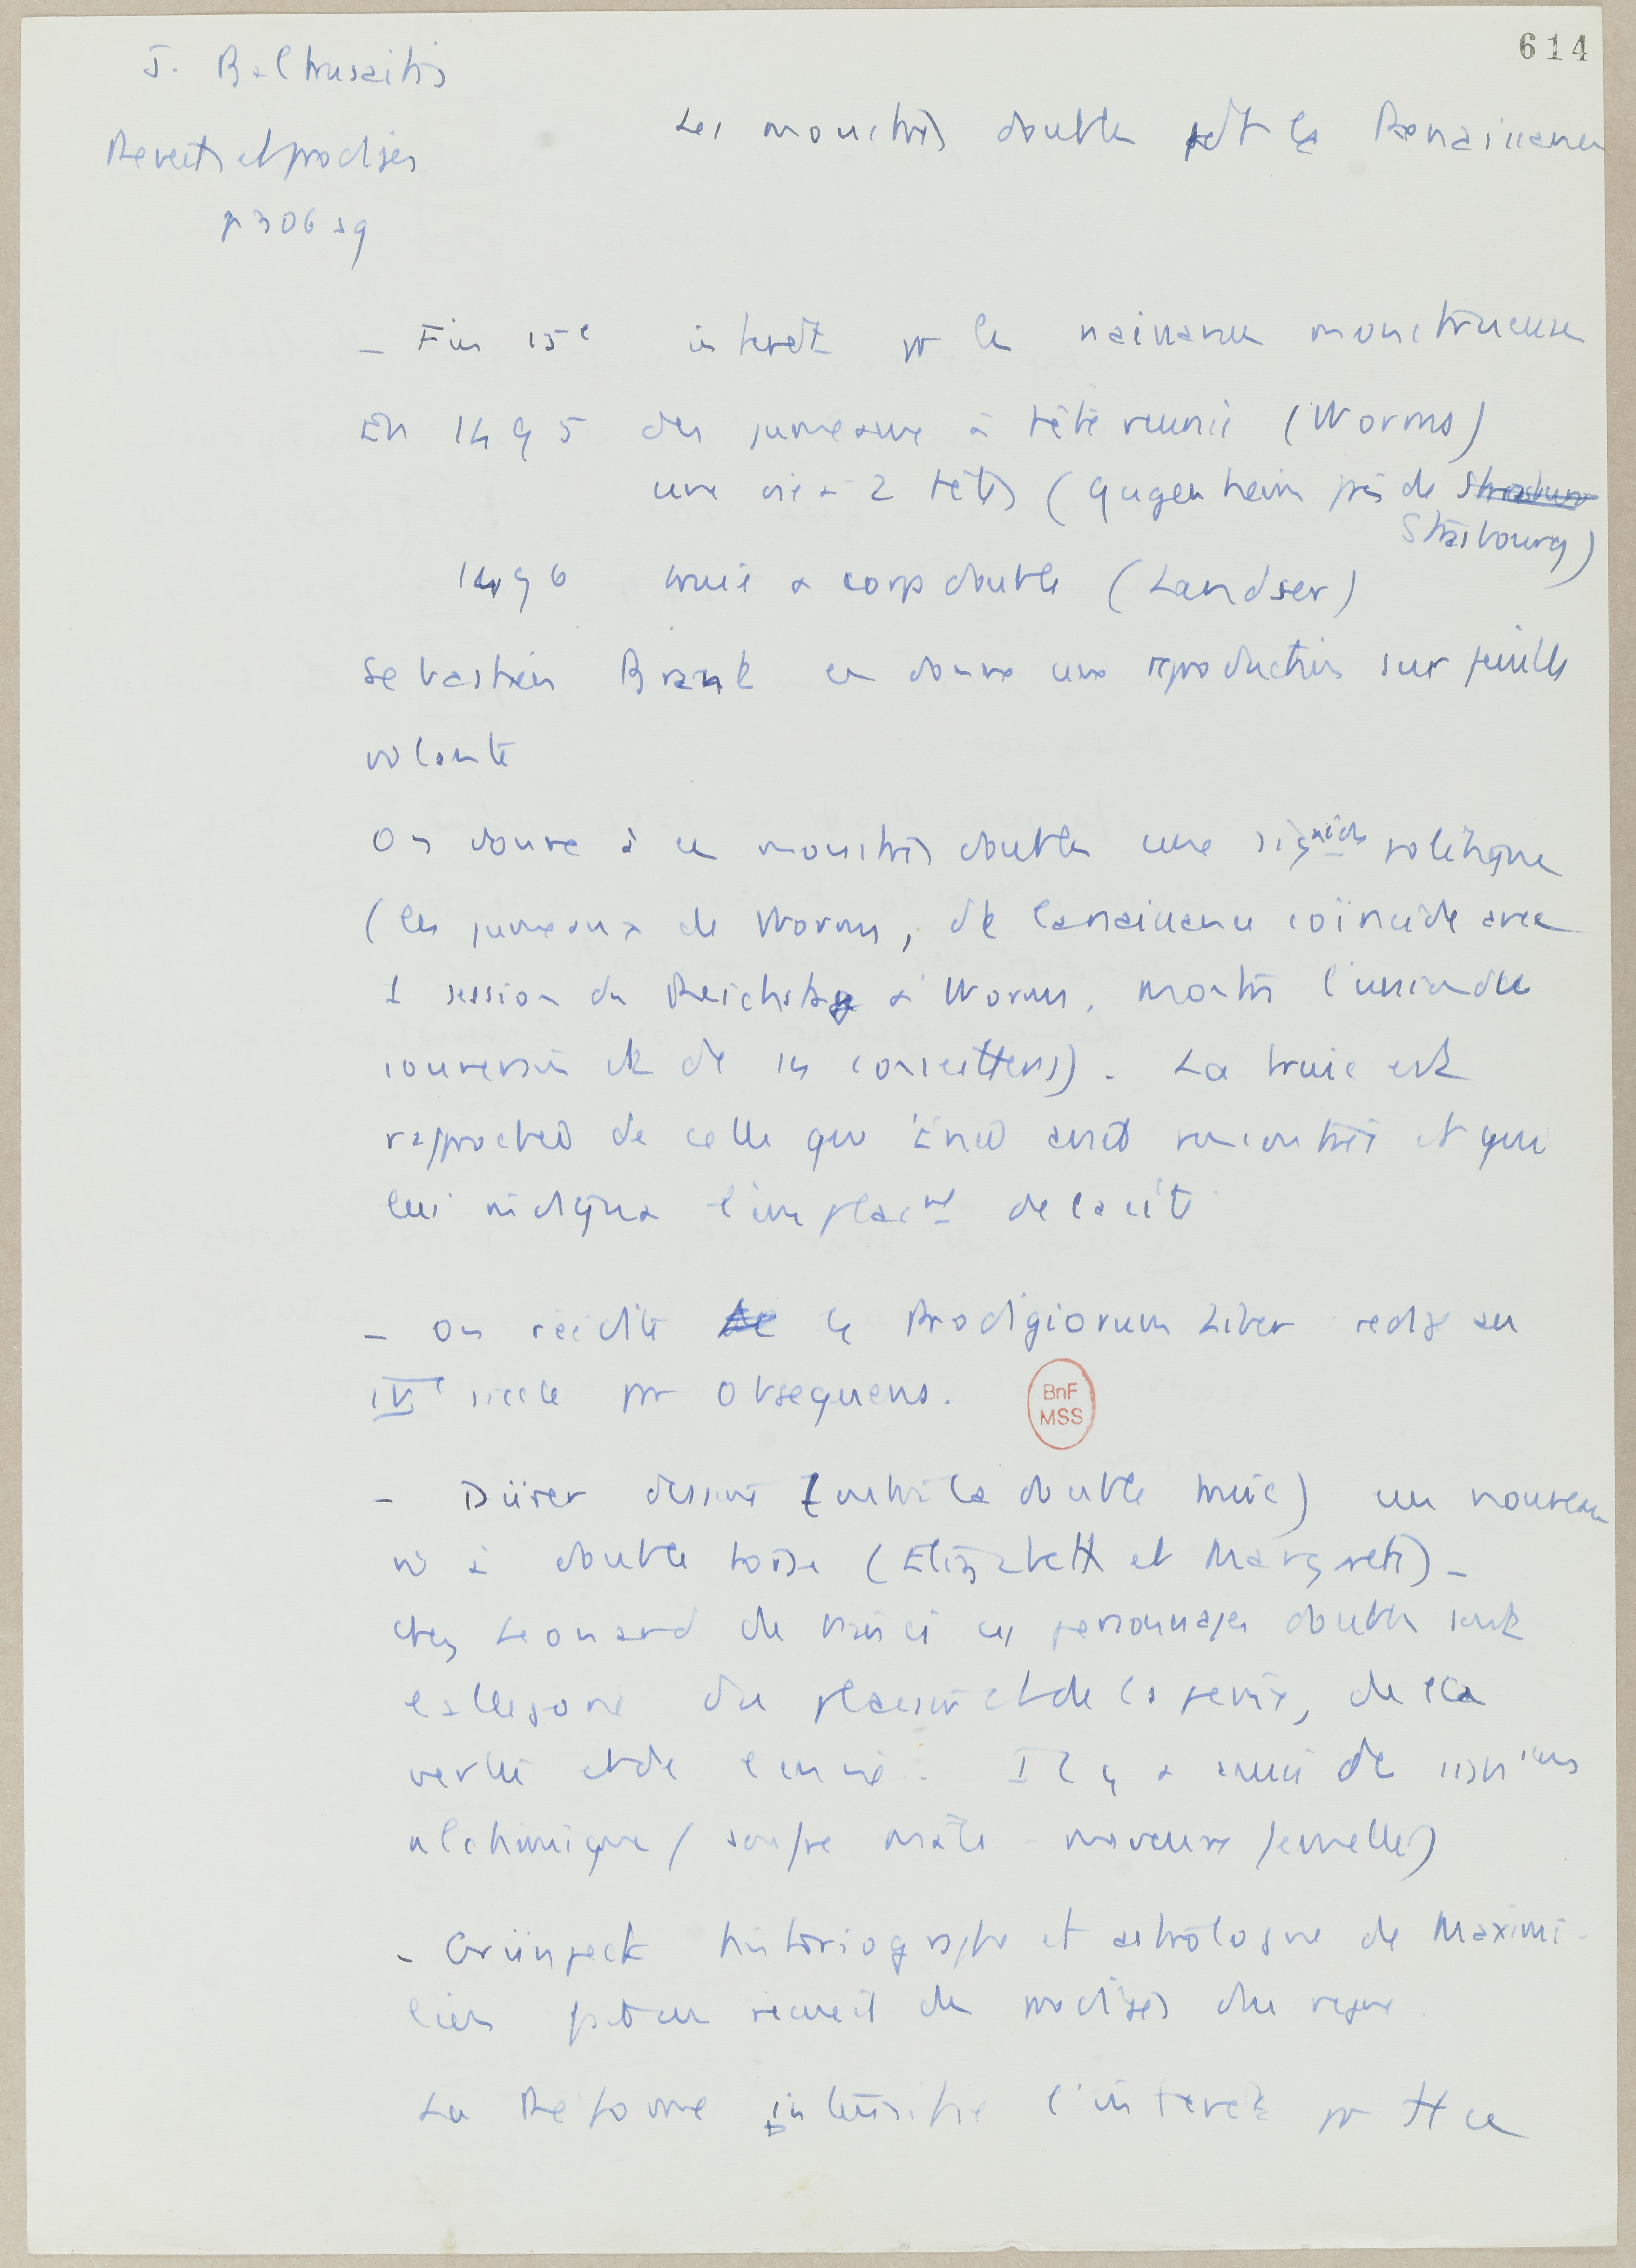 614
J. Baltrusaitis
Reveils et prodiges
p 306 sq
Les monstres doubles pdt la Renaissance
- Fin 15e interêt pr les naissances monstrueuses
En 1495 des jumeaux à tête reunie (Worms)
une oie à 2 têtes (Gugenheim près de Strasburg
Strasbourg)
1496 truie à corps double (Landser)
Sebastien Brant en donne une reproduction sur feuille
volante
On donne à ces monstres doubles une signion politique
(les jumeaux de Worms, dt la naissance coïncide avec
1 session du Reichstag à Worms, montre l'union du
souverain et de ses conseillers). La truie est
rapprochée de celle que Enée avait rencontrée et qui
lui indiqua l'emplacmt de la cité
- On reedite le Prodigiorum Liber redigé au
IVe siecle par Obsequens.
BnF
MSS
- Dürer dessine (outre la double truie) un nouveau
né à double torse (Elizabeth et Margarete) -
chez Leonard de Vinci ces personnages doubles sont
l'allegorie du plaisir et de la peine, de la
vertu et de l'envie. Il y a aussi des
alchimique (soufre mâle - mercure femelle)
- Grünpeck historiographe et astrologue de Maximi-
lien fait un recueil des prodiges du regne.
La Reforme intensifie l'interêt pr tt ce